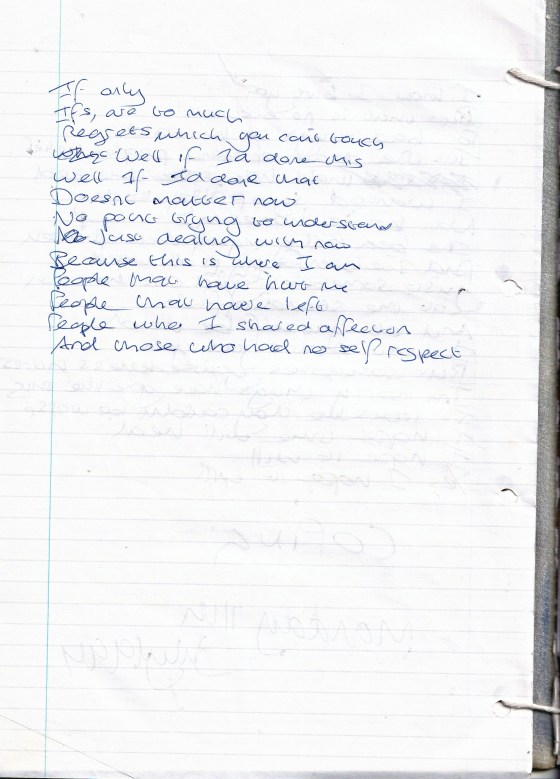 If only
Ifs, are to much
Regrets which you can't touch
Well if I'd done this
Well If I'd done that
Doesnt matter now
No point trying to understand
Just dealing with now
Because this is where I am
People that have hurt me
People that have left
People who I shared affection
And those who had no self respect